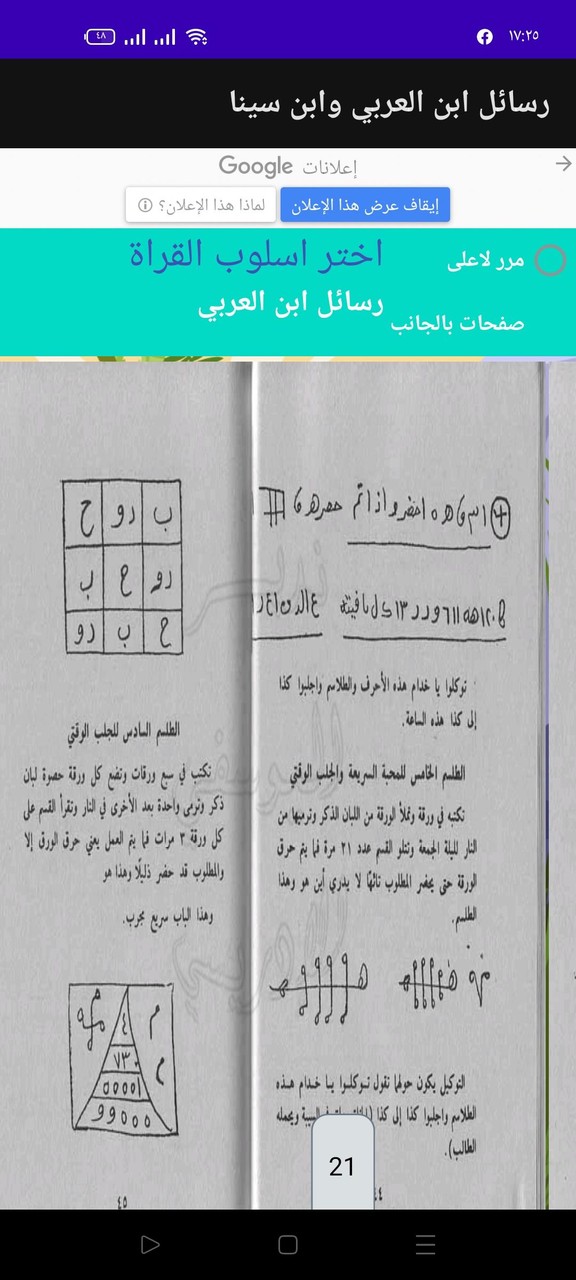 ١٧:٢٥
٤٨
رسائل ابن العربي وابن سينا
إعلانات Google
إيقاف عرض هذا الإعلان
لماذا هذا الإعلان؟
اختر اسلوب القراة
مرر لاعلى
رسائل ابن العربي
صفحات بالجانب
توكلوا يا خدام هذه الأحرف والطلاسم واجلبوا كذا
إلى كذا هذه الساعة.
الطلسم الخامس للمحبة السريعة والجلب الوقتي
تكتبه في ورقة وتملأ الورقة من اللبان الذكر وترميها من
النار ليلة الجمعة وتتلو القسم عدد ٢١ مرة فما يتم حرق
الورقة حتى يحضر المطلوب تائهًا لا يدري أين هو وهذا
الطلسم.
التوكيل يكون حولها تقول توكلوا يا خدام هذه
الطلاسم واجلبوا كذا إلى كذا
البيبة ويحمله
الطالب).
ب دو ح
دو ح ب
ح ب دو
الطلسم السادس للجلب الوقتي
تكتب في سبع ورقات وتضع كل ورقة حصوة لبان
ذكر وترمى واحدة بعد الأخرى في النار وتقرأ القسم على
كل ورقة ٣ مرات فما يتم العمل يعني حرق الورق إلا
والمطلوب قد حضر ذليلًا وهذا هو
وهذا الباب سريع مجرب.
٤
٧٣
٤٥
21